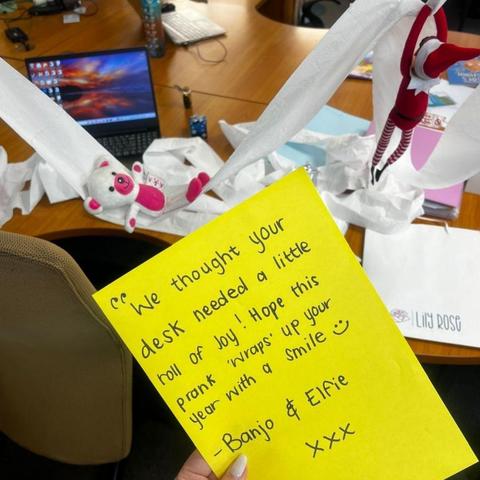 “We thought your
desk needed a little
roll of Joy! Hope this
prank 'wraps' up your
year with a smile ☺
-Banjo & Elfie
xxx
Lily Rose